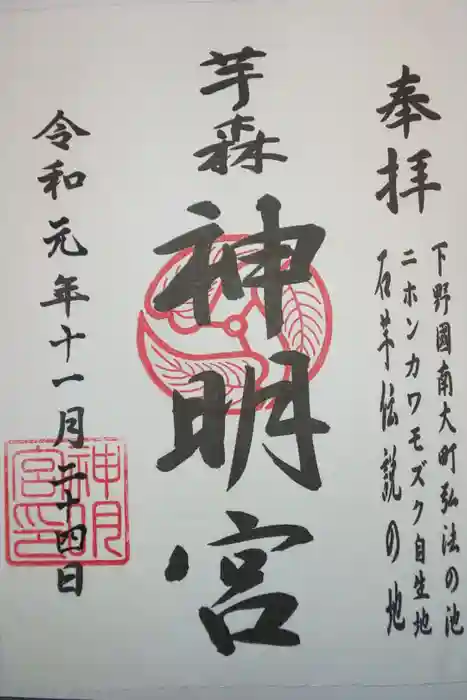 奉拝
下野國南大町弘法の池
ニホンカワモズク自生地
石芋伝説の地
芋森
神明宮
令和元年十一月二十四日
神明
宮印